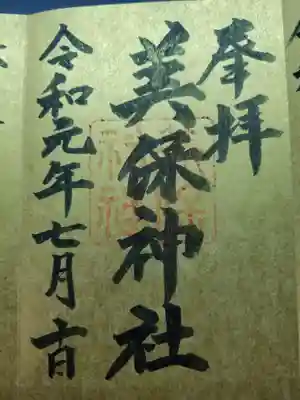 奉拝
美保神社
令和元年七月十一日